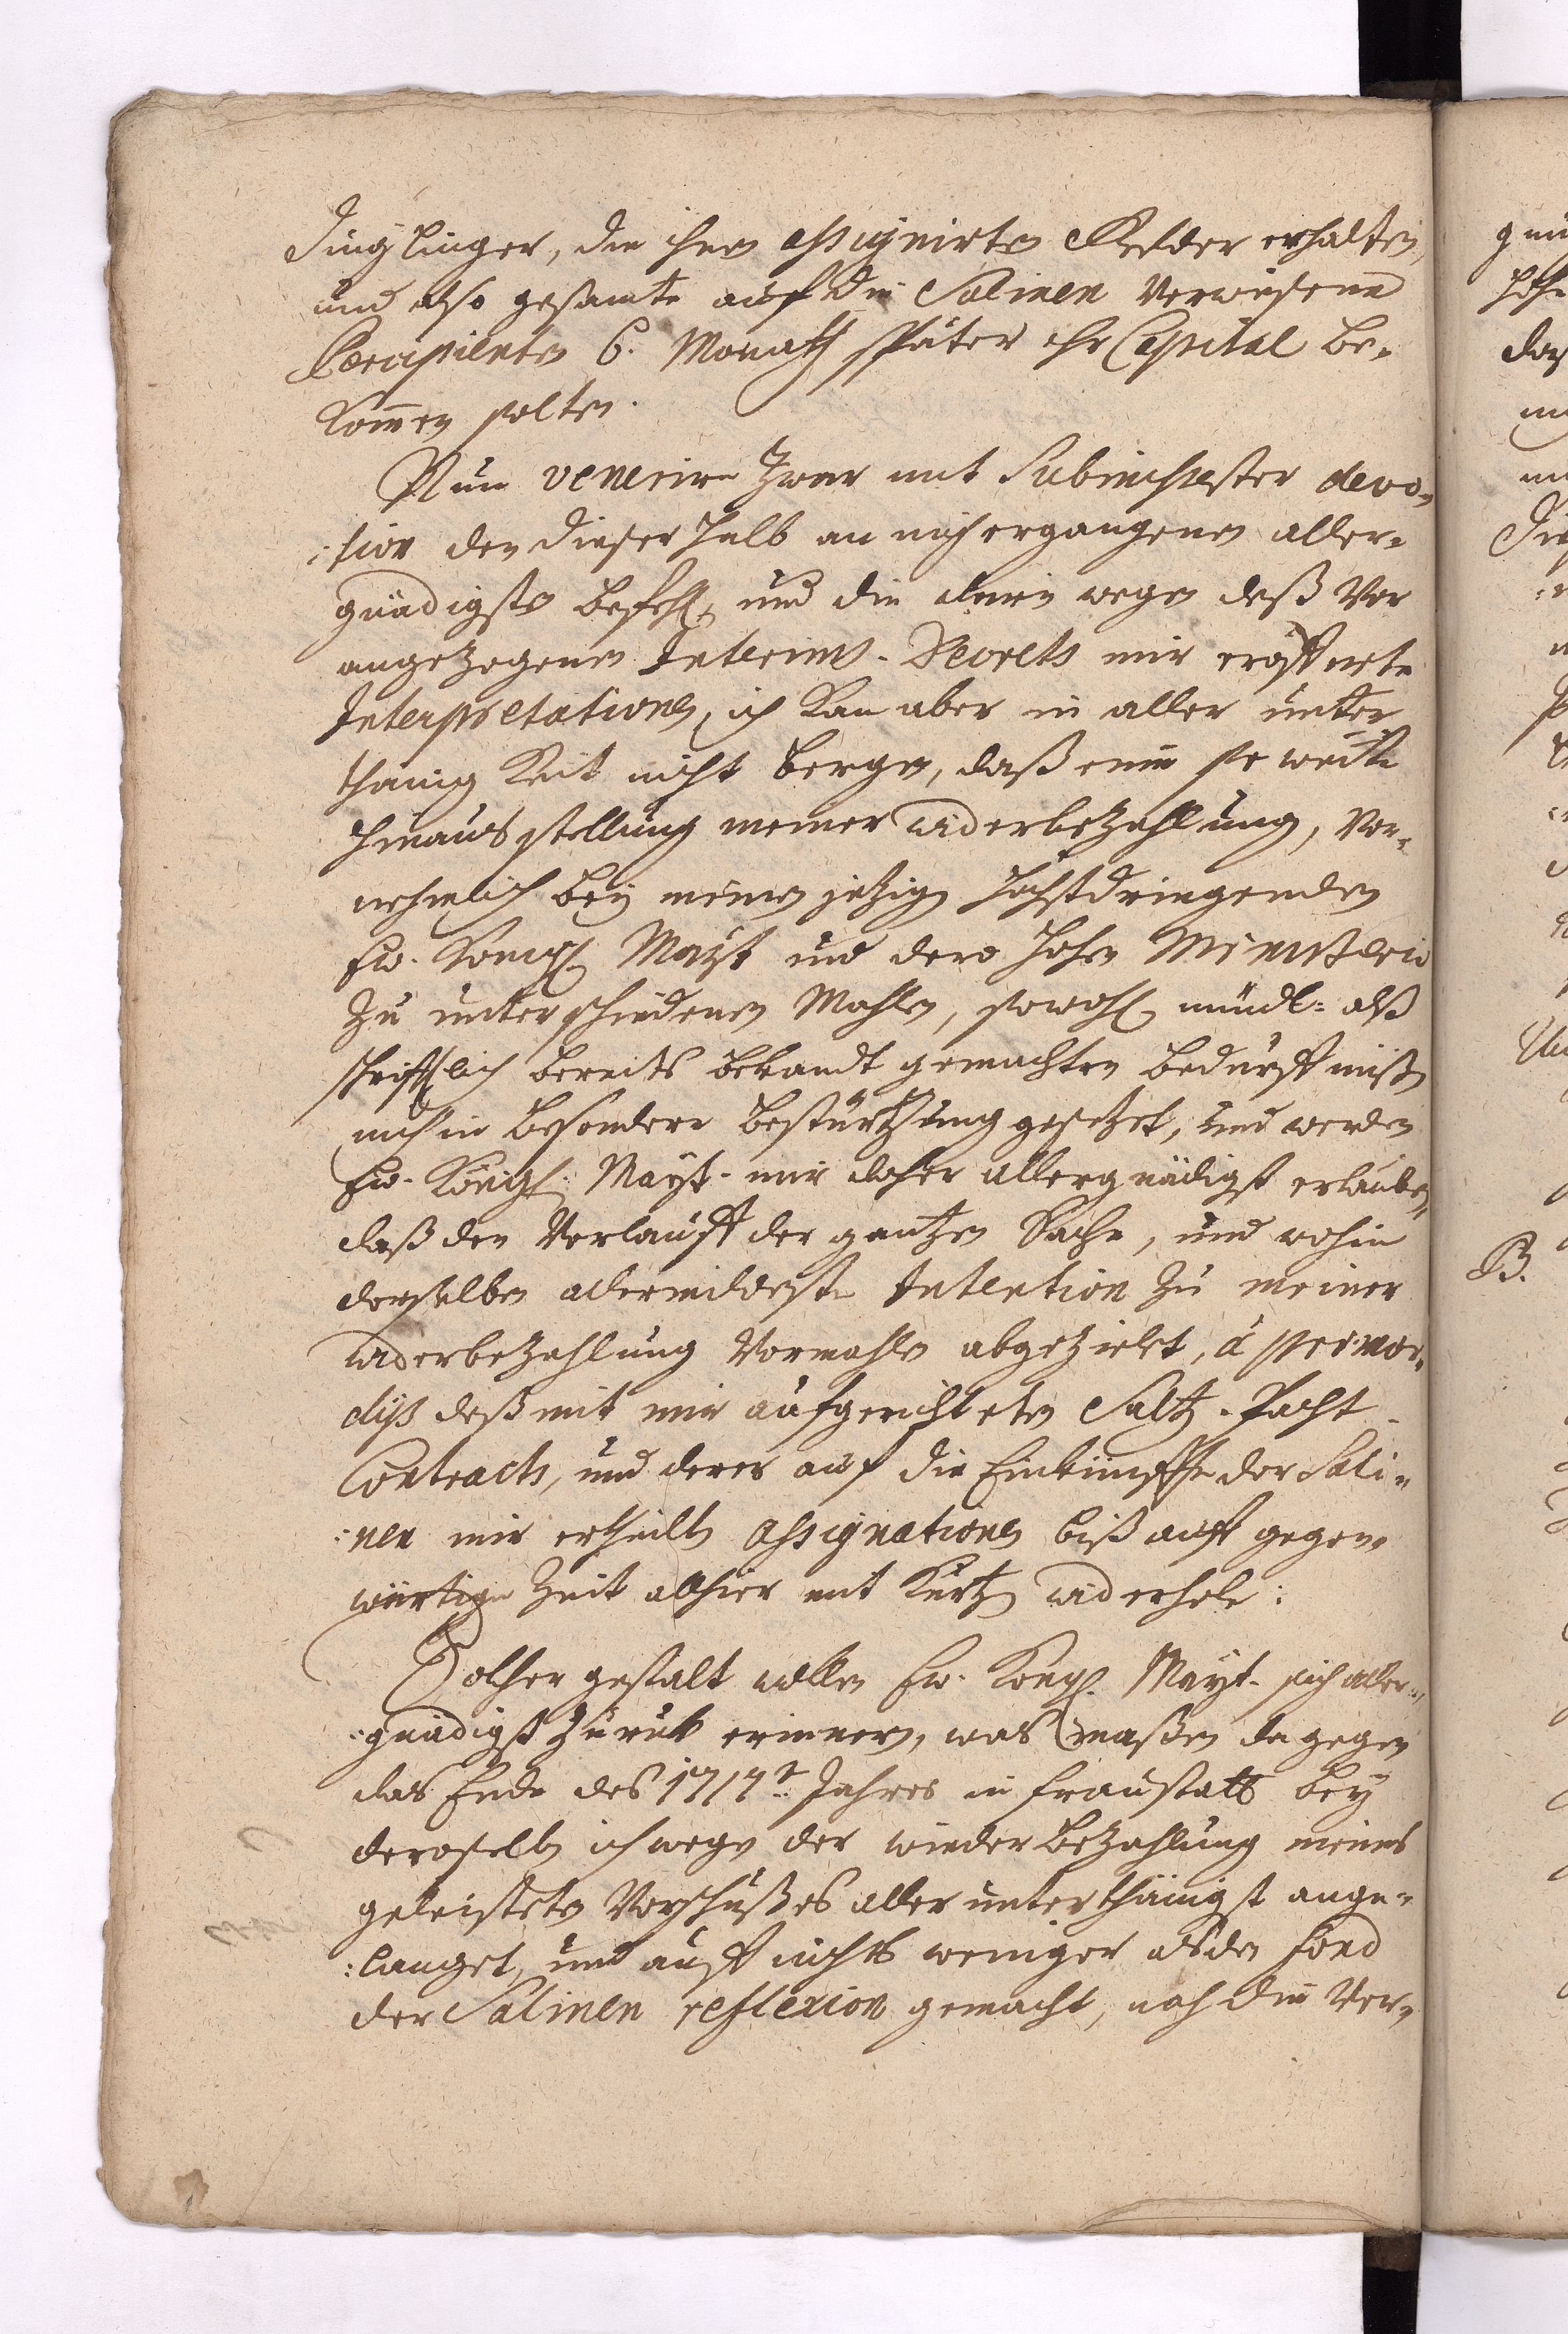 Dinglinger, die ihnen assignirten Gelder erhalten,
und also gesamte auf die Salinen Verwiesene
Percipienten 6. Monath später ihr Capital be-
kom̅en solten.
Nun venerire zwar mit Submissester devo-
:tion den dieserhalb an mich ergangenen aller-
gnädigsten Befehl, und die darin wegen deß Vor
angezogenen Interims-Decrets mir eröffnete
Interpretationen, ich kan aber in aller unter
thänigkeit nicht bergen, daß eine so weite
hinausstellung meiner widerbezahlung, Vor-
nehmlich bey meinen jetzigen höchstdringenden
Ew. Königl. Mayt und dero hohen Ministerio
zu unterschiedenen Mahlen, sowohl mündl: alß
schrifftlich bereits bekandt gemachten Bedürffnißen
mich in besondere bestürtzung gesetzet, und werden
Ew. Königl. Mayt. mir daher allergnädigst erlauben,
daß den Verlauff der gantzen Sache, und wohin
derselben allermildeste Intention zu meiner
widerbezahlung Vormahls abgezielet, à primor-
dijs deß mit mir aufgerichteten Saltz-Pacht
Contracts, und derer auf die Einkünffte der Sali-
:nen mir ertheilten assignationen biß auff gegen-
wärtige Zeit alhier mit kurtzen widerhole:
Solcher gestalt wollen Ew. Königl. Mayt. sich aller-
:gnädigst zurück erinnern, was maßen da gegen
das Ende des 1717t. Jahres in Fraustatt bey
deroselben ich wegen der wiederbezahlung meines
geleisteten Vorschußes allerunterthänigst ange-
:langet, und auff nichts weniger als den Fond
der Salinen reflexion gemacht, nach die Ver-